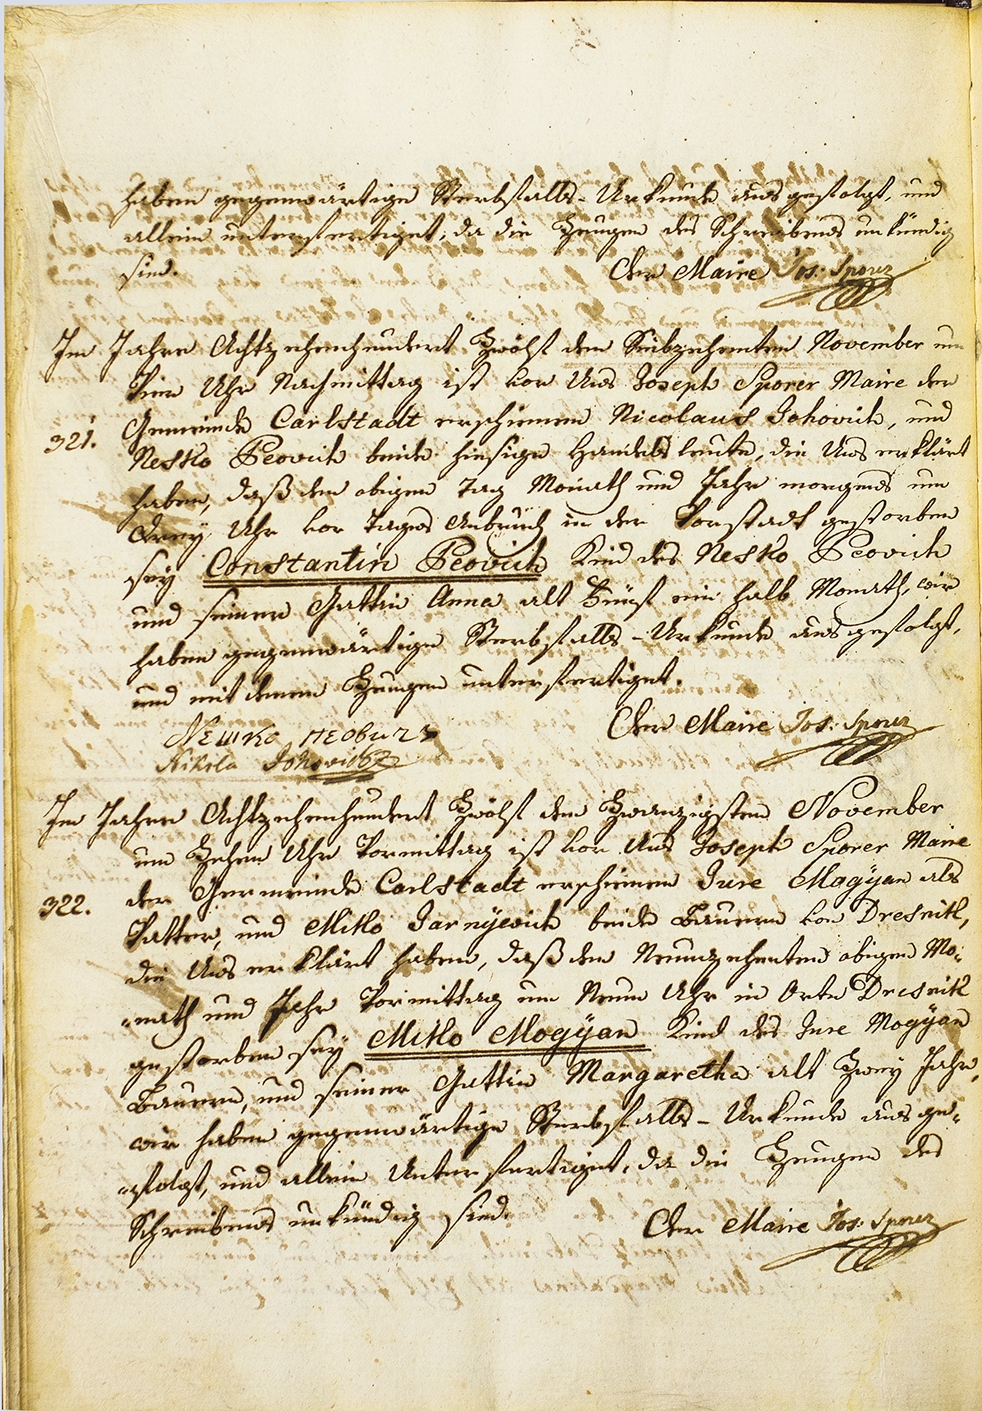 haben gegenwärtige Sterbfalls-Urkunde ausgefolgt, und
allein unterfertiget, da die Zeugen des Schreibens unkündig
sind. Der Maire Jos: Sporer
Im Jahre Achtzehenhundert Zwölf den Siebzehenten November um
Vier Uhr Nachmittag ist vor Uns Joseph Sporer Maire der
Gemeinde Carlstadt erschienen Nicolaus Johovich, und
321. Nesko Peovich beide hiesige Handelsleute, die Uns erklärt
haben, daß den obigen Tag Monath und Jahr morgends um
drey Uhr vor Tages Anbruch in der Vorstadt gestorben
sey Constantin Peovich Kind des Nesko Peovich
und seiner Gattin Anna alt Fünf ein halb Monath, wir
haben gegenwärtige Sterbfalls-Urkunde ausgefolgt,
und mit denen Zeugen unterfertiget.
Нешко Пеовичъ Der Maire Jos: Sporer
Nikola Johovich
Im Jahre Achtzehenhundert Zwölf den Zwanzigsten November
um Zehen Uhr Vormittag ist vor Uns Joseph Sporer Maire
322. der Gemeinde Carlstadt erschienen Jure Magÿan als
Vatter, und Mitto Jarnÿevich beide Bauern von Dresnik,
die Uns erklärt haben, daß den Neunzehenten obigen Mo-
nath und Jahr Vormittag um Neun Uhr in Orte Dresnik
gestorben sey Mitto Mogÿan Kind des Jure Mogÿan
Bauern, und seiner Gattin Margaretha alt Zwey Jahr,
wir haben gegenwärtige Sterbfalls-Urkunde ausge-
folgt, und allein Unterfertiget, da die Zeugen des
Schreibens unkündig sind. Der Maire Jos: Sporer